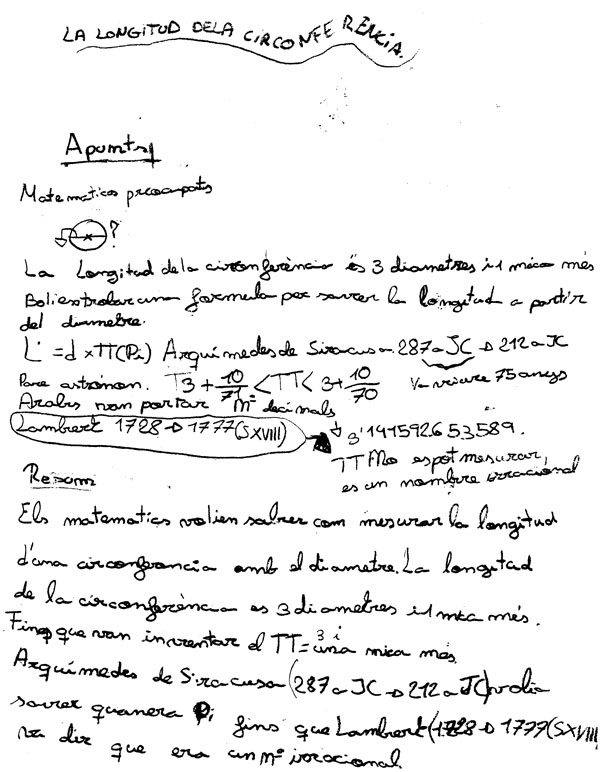 LA LONGITUD DE LA CIRCONFERÈNCIA.
Apunts
Matematics preocupats
?
La Longitud de la circonferència és 3 diametres i 1 mica més
Bolien trobar una formula per saver la longitud a partir
del diametre.
L=d×TT(Pi) Arquímedes de Siracusa 287 a JC → 212 a JC
Pare astrònom. T3+10/71<TT<3+10/70 Va viure 75 anys
Arabs van portar Nº decimals
Lambert 1728 → 1777(SXVIII) 3'141592653589.
TT No es pot mesurar,
es un nombre irracional
Resum
Els matematics volien sabrer com mesurar la longitud
d'una circonferancia amb el diametre. La longitud
de la circonferència es 3 diametres i 1 mica més.
Fins que van inventar el TT=3 i una mica més
Arquímedes de Siracusa (287 a JC → 212 a JC) volia
saver quan era Pi, fins que Lambert (1728 → 1777(SXVIII
va dir que era un nº irracional